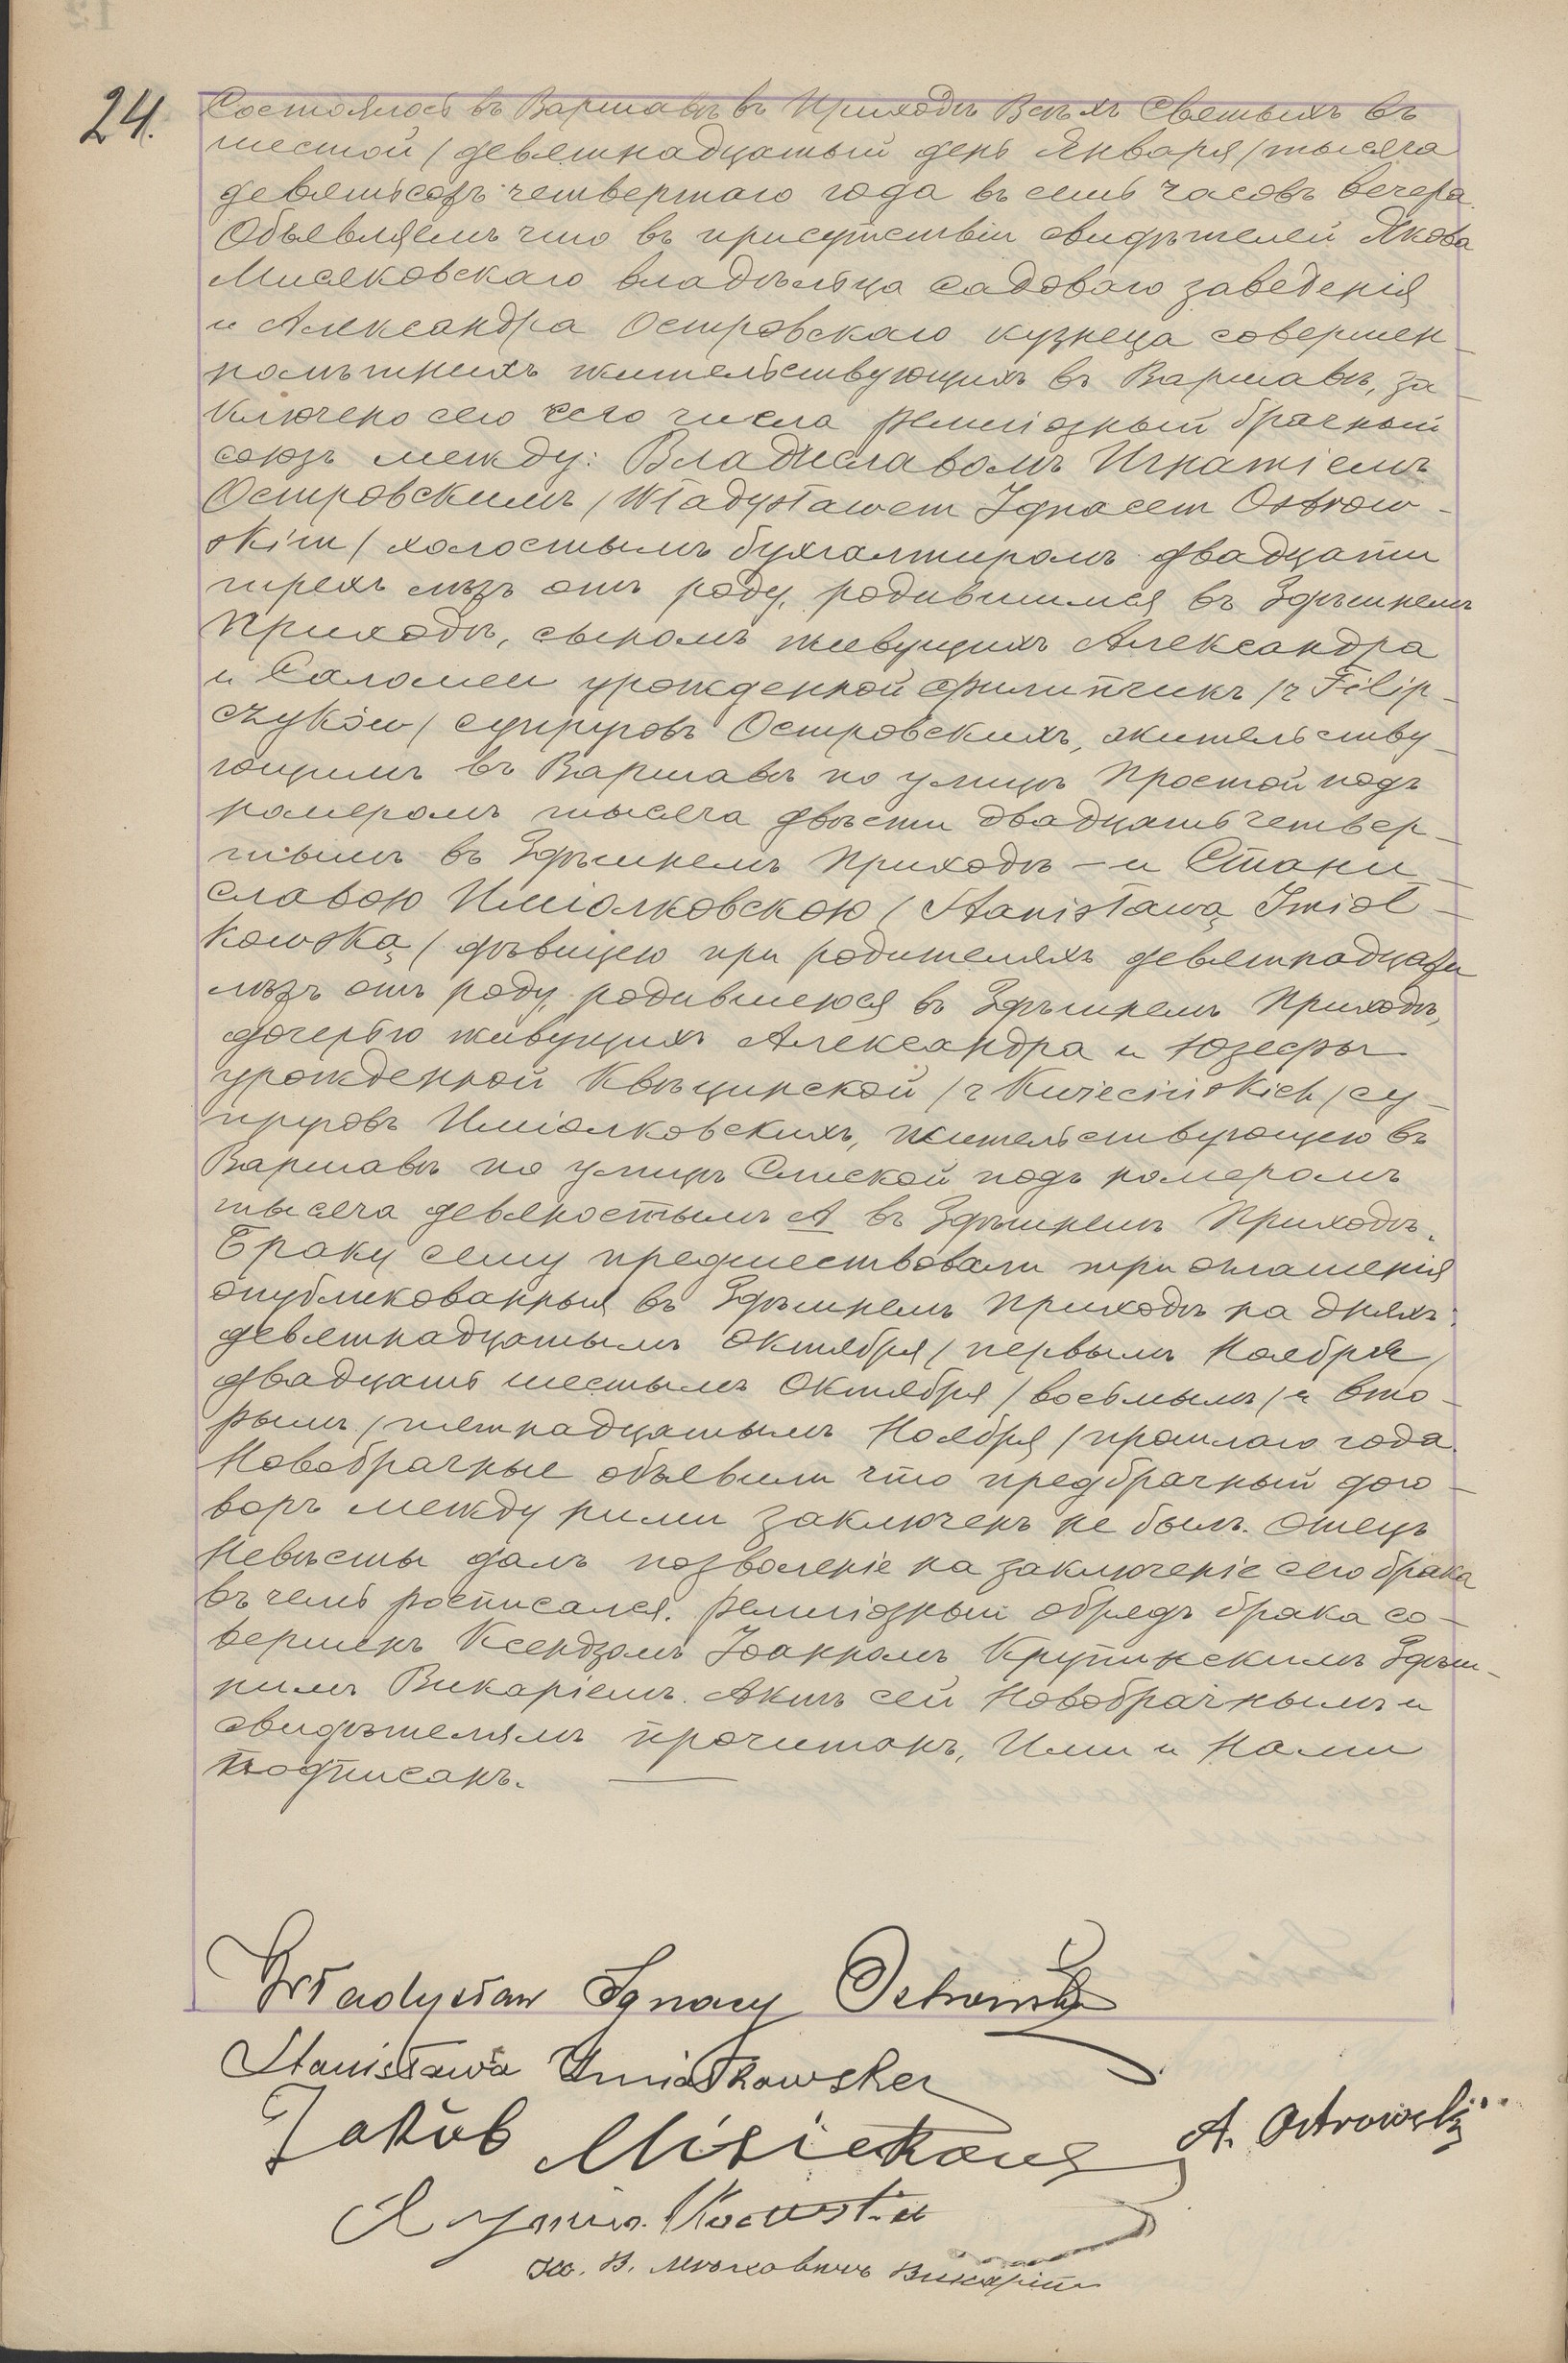 24.
Состоялось въ Варшавѣ въ Приходѣ Всѣхъ Святыхъ въ
шестой / девятнадцатый день Января / тысяча
девятьсотъ четвертаго года въ семь часовъ вечера.
Объявляемъ что въ присутствіи свидѣтелей Якова
Мисяковскаго владѣльца садоваго заведенія
и Александра Островскаго кузнеца совершен-
нолѣтнихъ жительствующихъ въ Варшавѣ, за-
ключено сего числа религіозный брачный
союзъ между: Владиславомъ Игнатіемъ
Островскимъ / Władysławem Ignacem Ostrow-
skim / холостымъ бухгалтиромъ двадцати
трехъ лѣтъ отъ роду, родившимся въ Здѣшнемъ
Приходѣ, сыномъ живущихъ Александра
и Саломеи урожденной Филипчикъ / z Filip-
czyków / супруговъ Островскихъ, жительству-
ющимъ въ Варшавѣ по улицѣ Простой подъ
номеромъ тысяча двѣсти двадцать четвер-
тымъ въ Здѣшнемъ Приходѣ – и Стани-
славою Иміолковскою / Stanisławą Imioł-
kowską / дѣвицею при родителяхъ девятнадцати
лѣтъ отъ роду, родившеюся въ Здѣшнемъ Приходѣ,
дочерью живущихъ Александра и Юзефы
урожденной Квѣцинской / z Kwiecińskich / су-
пруговъ Иміолковскихъ, жительствующею въ
Варшавѣ по улицѣ Слиской подъ номеромъ
тысяча девяностымъ А въ Здѣшнемъ Приходѣ.
Браку сему предшествовали три оглашенія
опубликованныя въ Здѣшнемъ Приходѣ на дняхъ:
девятнадцатымъ Октября / первымъ Ноября /
двадцать шестымъ Октября / восьмымъ / и вто-
рымъ / пятнадцатымъ Ноября / прошлаго года.
Новобрачные объявили что предбрачный дого-
воръ между ними заключенъ не былъ. Отецъ
Невѣсты далъ позволеніе на заключеніе сего брака
въ чемъ росписался. Религіозный обрядъ брака со-
вершенъ Ксендзомъ Іоанномъ Крупинскимъ Здѣш-
нимъ Викаріемъ. Актъ сей Новобрачнымъ и
свидѣтелямъ прочитанъ, Ими и Нами
подписанъ.
Władysław Ignacy Ostrowski
Stanisława Imiołkowska
Jakób A. Ostrowski
Викарій